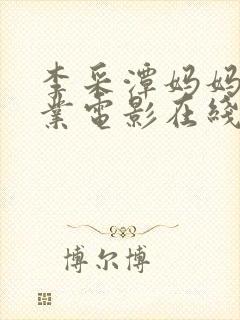 李采潭妈妈
业電影在綫
博尔博